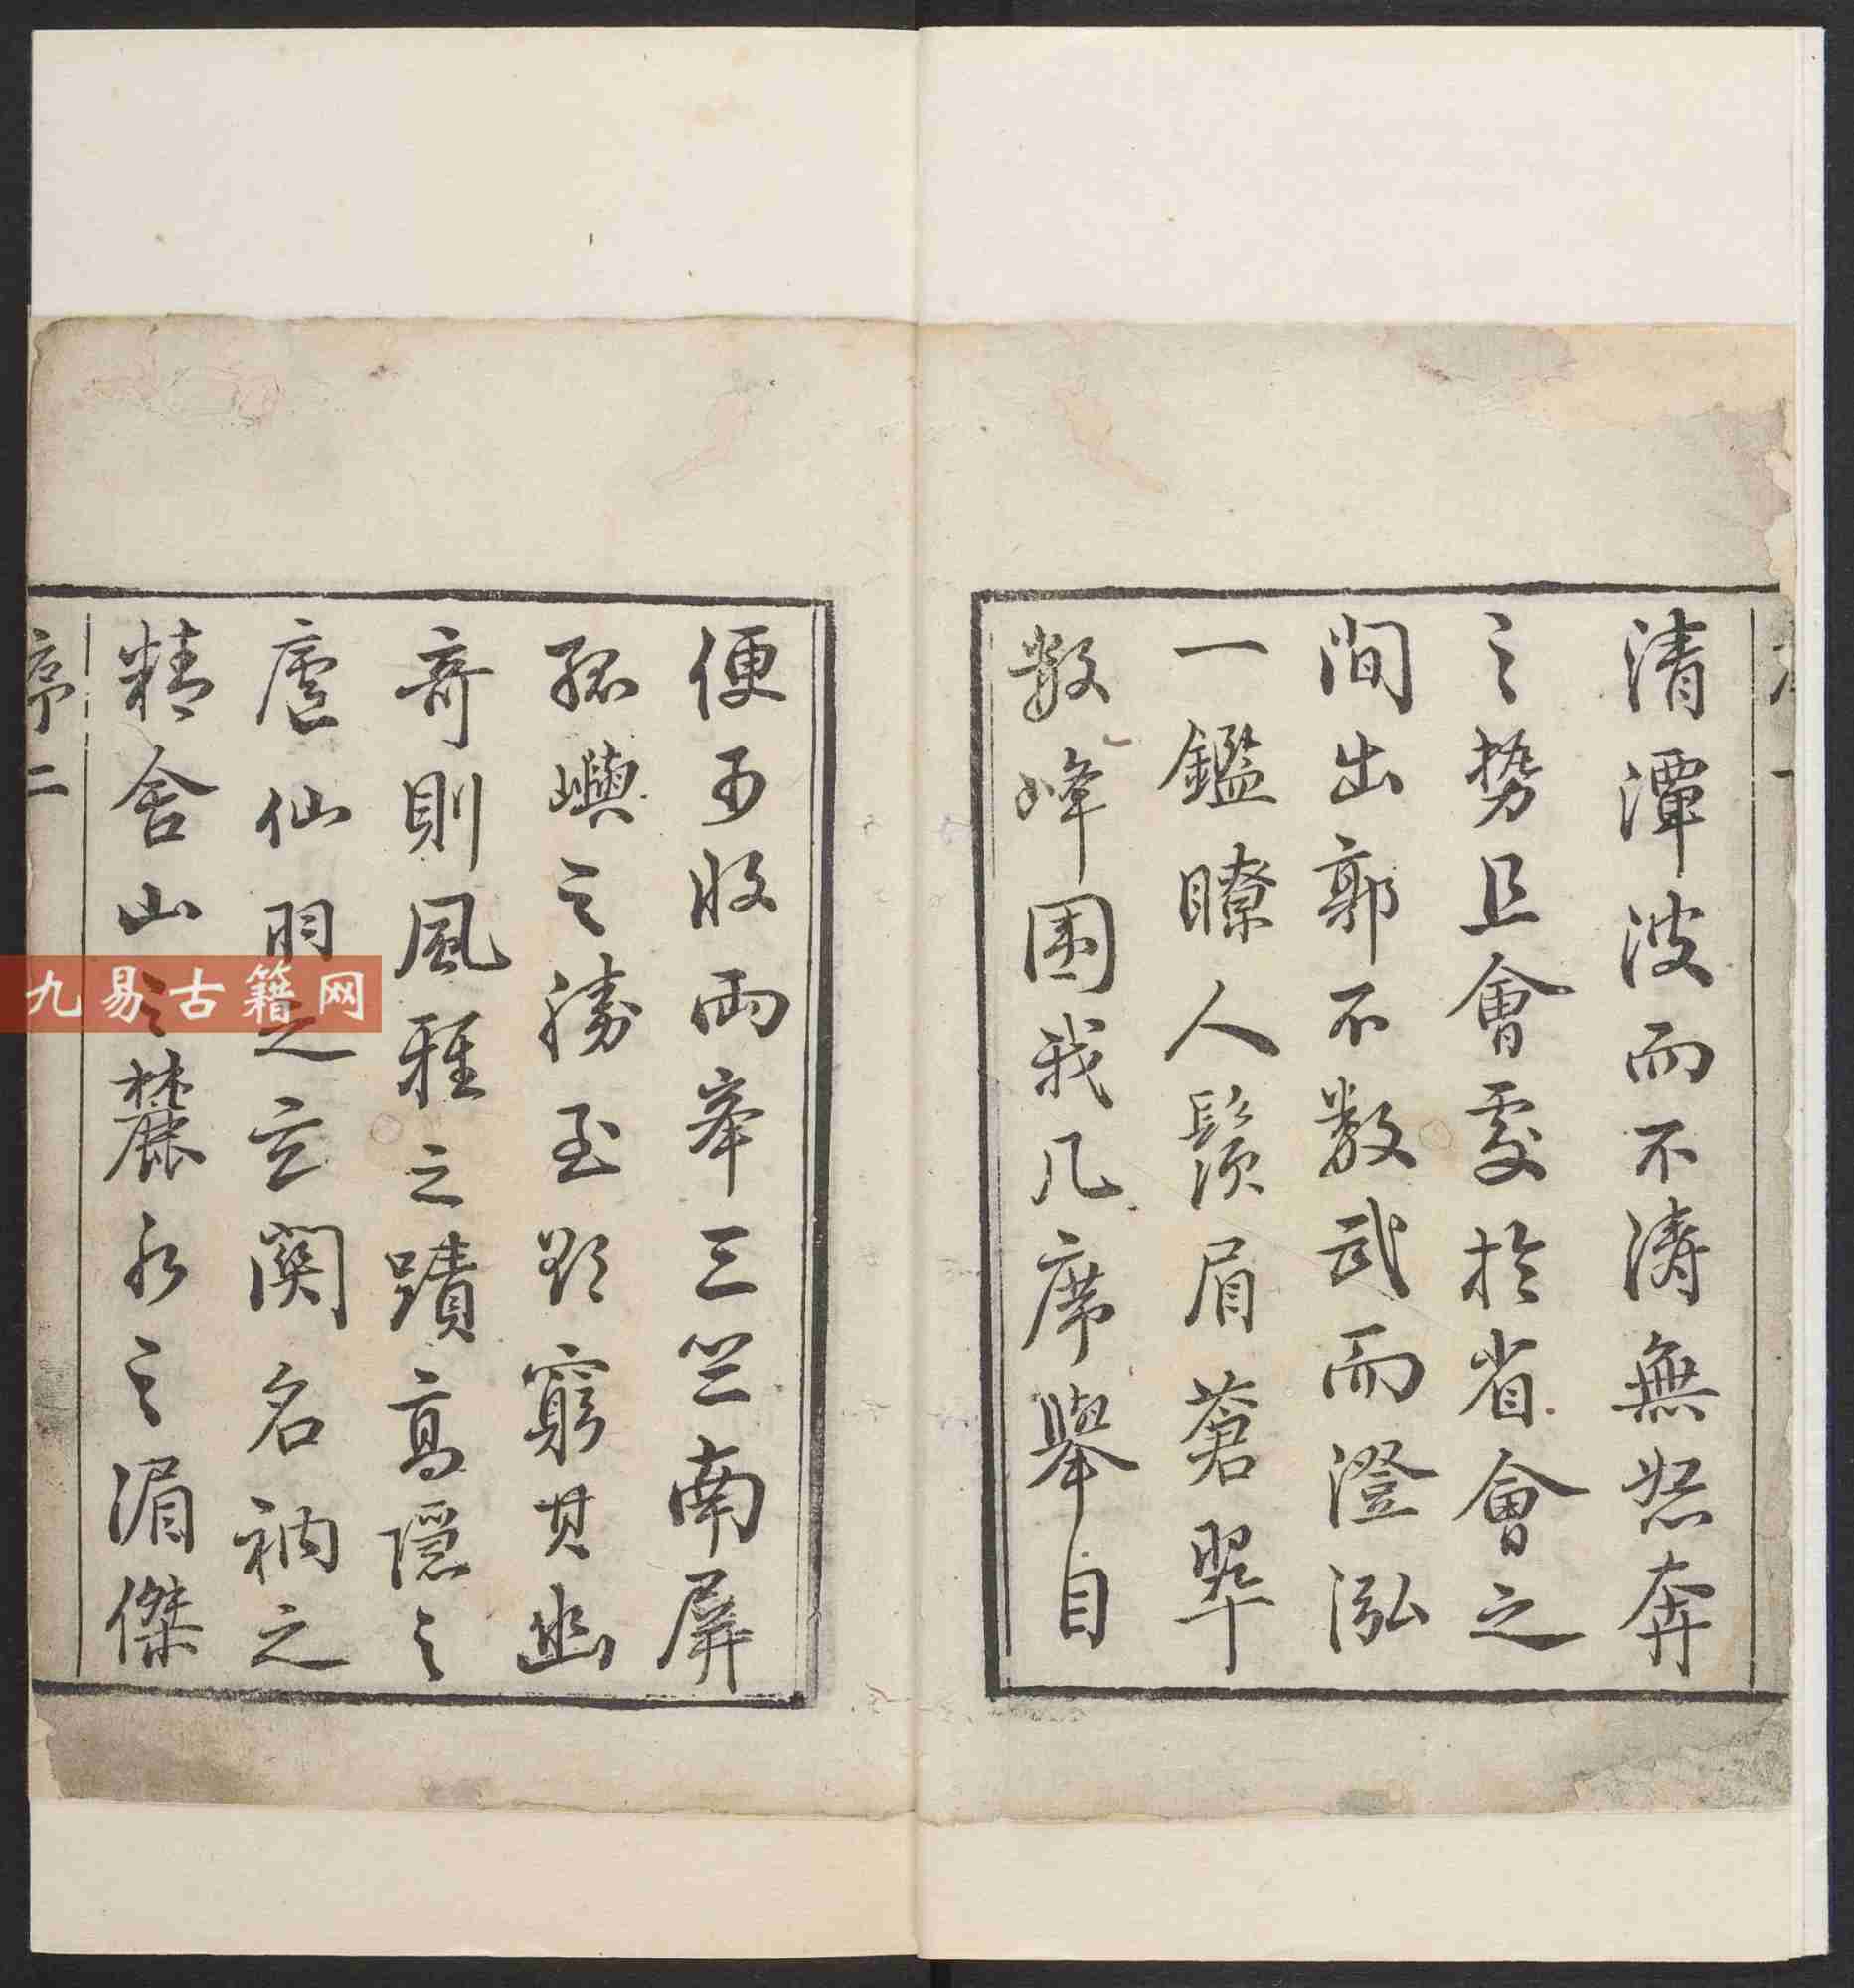 清潭波而不濤無怒奔
之势且會處於省會之
間出郭不數武而澄泓
一鑑瞭人鬚眉蒼翠
數峰圍我几席舉目
便可收兩峯三竺南屏
孤嶼之勝至欲窮其幽
奇則風雅之蹟高隱之
廬仙羽之玄關名衲之
精舍山之麓水之湄傑
序二
九易古籍网